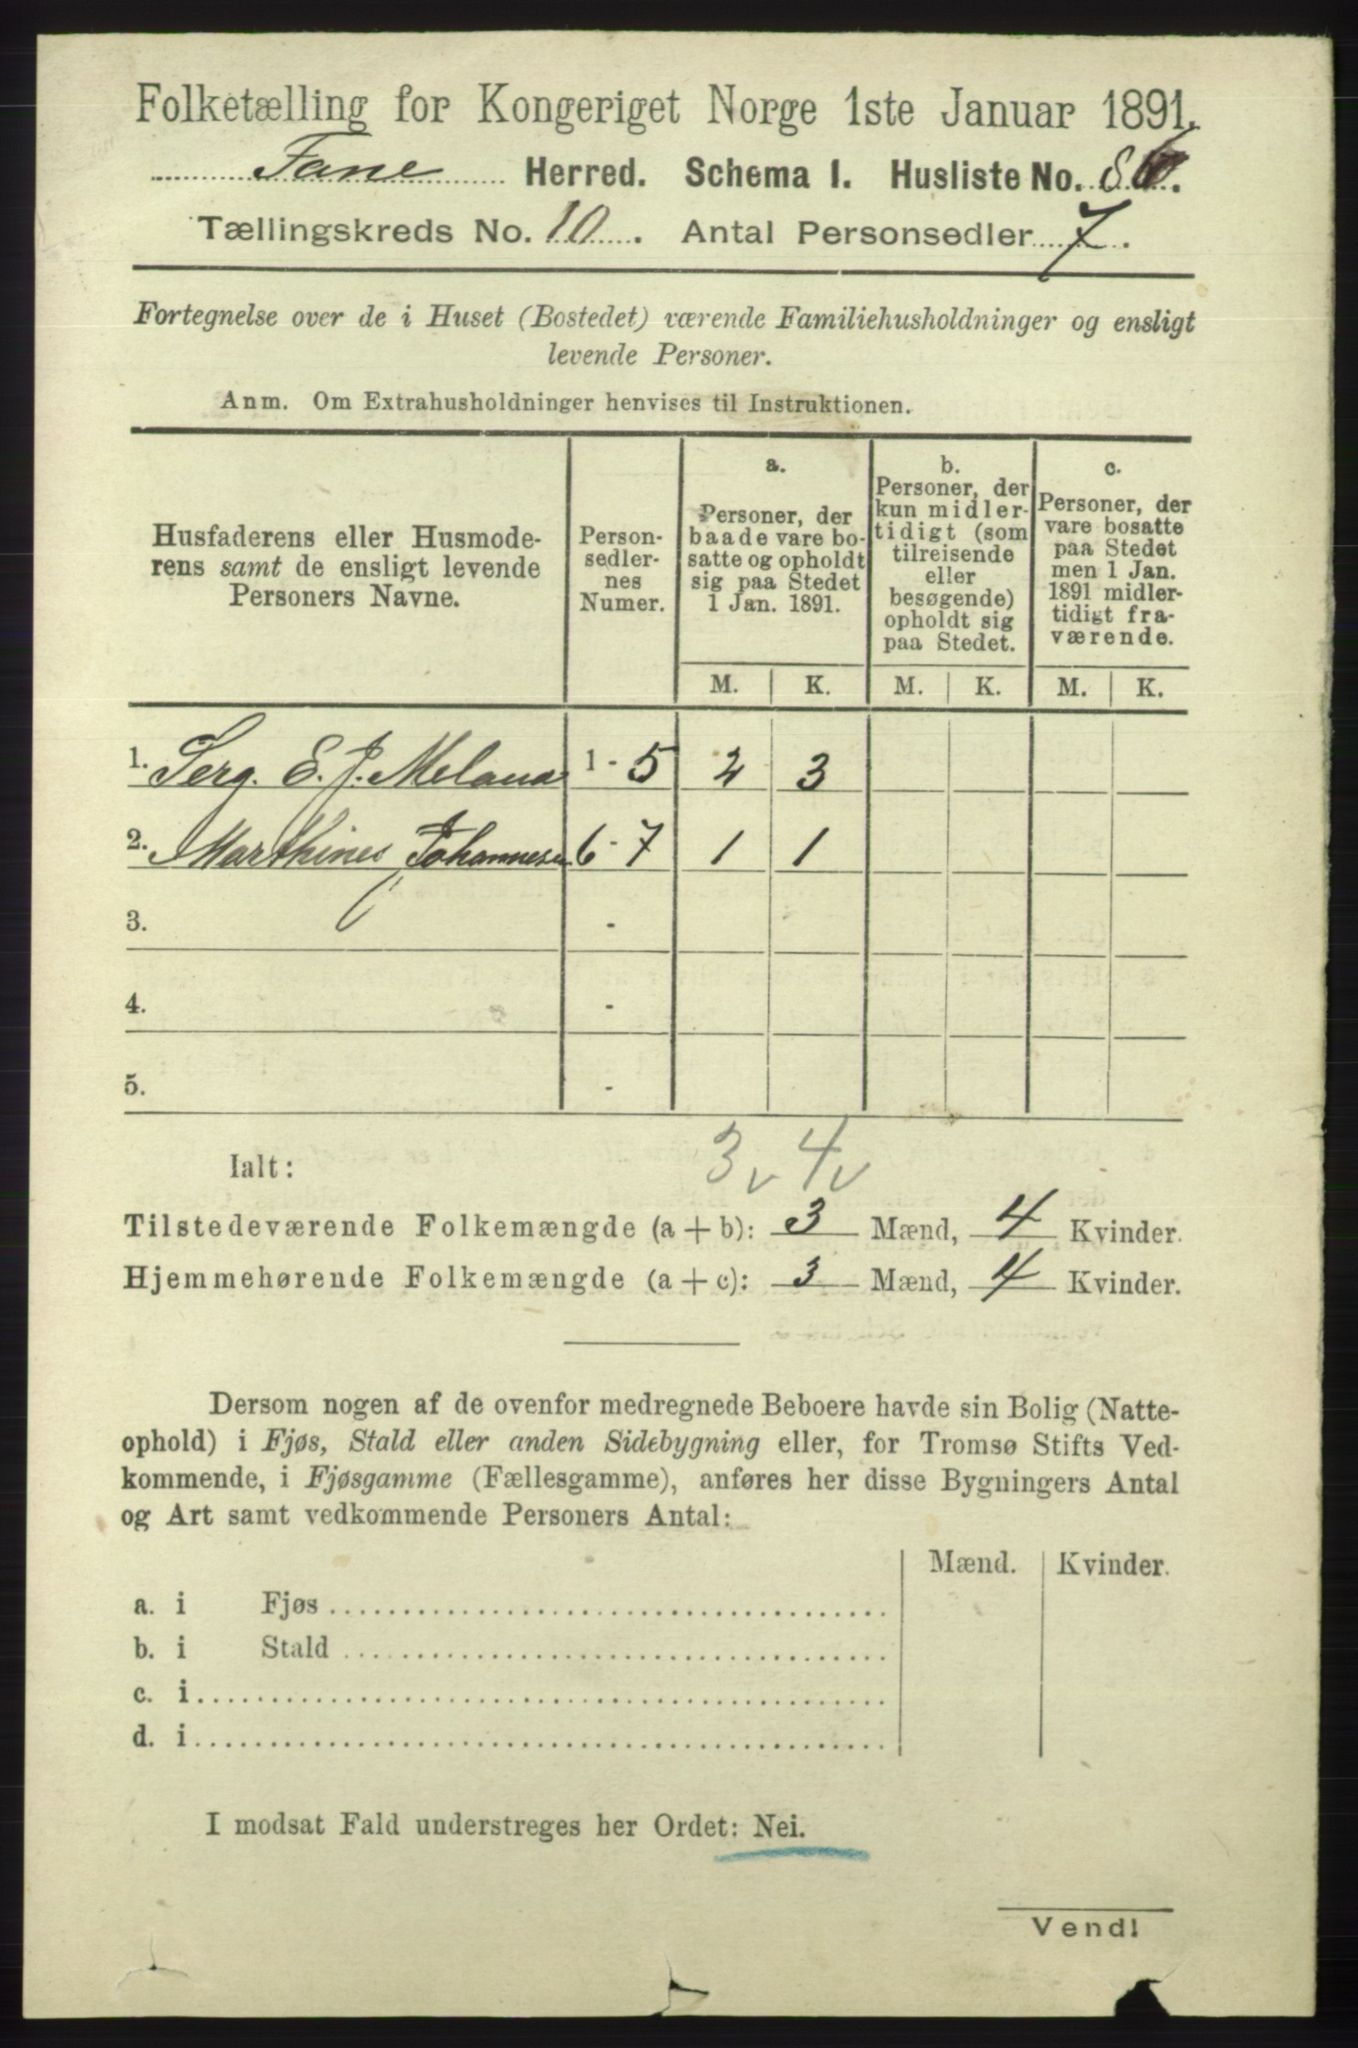 Folketælling for Kongeriget Norge 1ste Januar 1891.
Fane Herred. Schema I. Husliste No. 86.
Tællingskreds No. 10. Antal Personsedler 7.
Fortegnelse over de i Huset (Bostedet) værende Familiehusholdninger og ensligt
levende Personer.
Anm. Om Extrahusholdninger henvises til Instruktionen.
Husfaderens eller Husmode-
rens samt de ensligt levende
Personers Navne.
Person-
sedler-
nes
Numer.
a.
Personer, der
baade vare bo-
satte og opholdt
sig paa Stedet
1 Jan. 1891.
b.
Personer, der
kun midler-
tidigt (som
tilreisende
eller
besøgende)
opholdt sig
paa Stedet.
c.
Personer, der
vare bosatte
paa Stedet
men 1 Jan.
1891 midler-
tidigt fra-
værende.
M. K. M. K. M. K.
1. Serg. E. J. Meland 1 - 5 2 3
2. Marthines Johannesen 6 - 7 1 1
3. -
4. -
5. -
3 v 4 v
Ialt:
Tilstedeværende Folkemængde (a + b): 3 Mænd, 4 Kvinder.
Hjemmehørende Folkemængde (a + c): 3 Mænd, 4 Kvinder.
Dersom nogen af de ovenfor medregnede Beboere havde sin Bolig (Natte-
ophold) i Fjøs, Stald eller anden Sidebygning eller, for Tromsø Stifts Ved-
kommende, i Fjøsgamme (Fællesgamme), anføres her disse Bygningers Antal
og Art samt vedkommende Personers Antal:
Mænd. Kvinder.
a. i Fjøs
b. i Stald
c. i
d. i
I modsat Fald understreges her Ordet: Nei.
Vend!